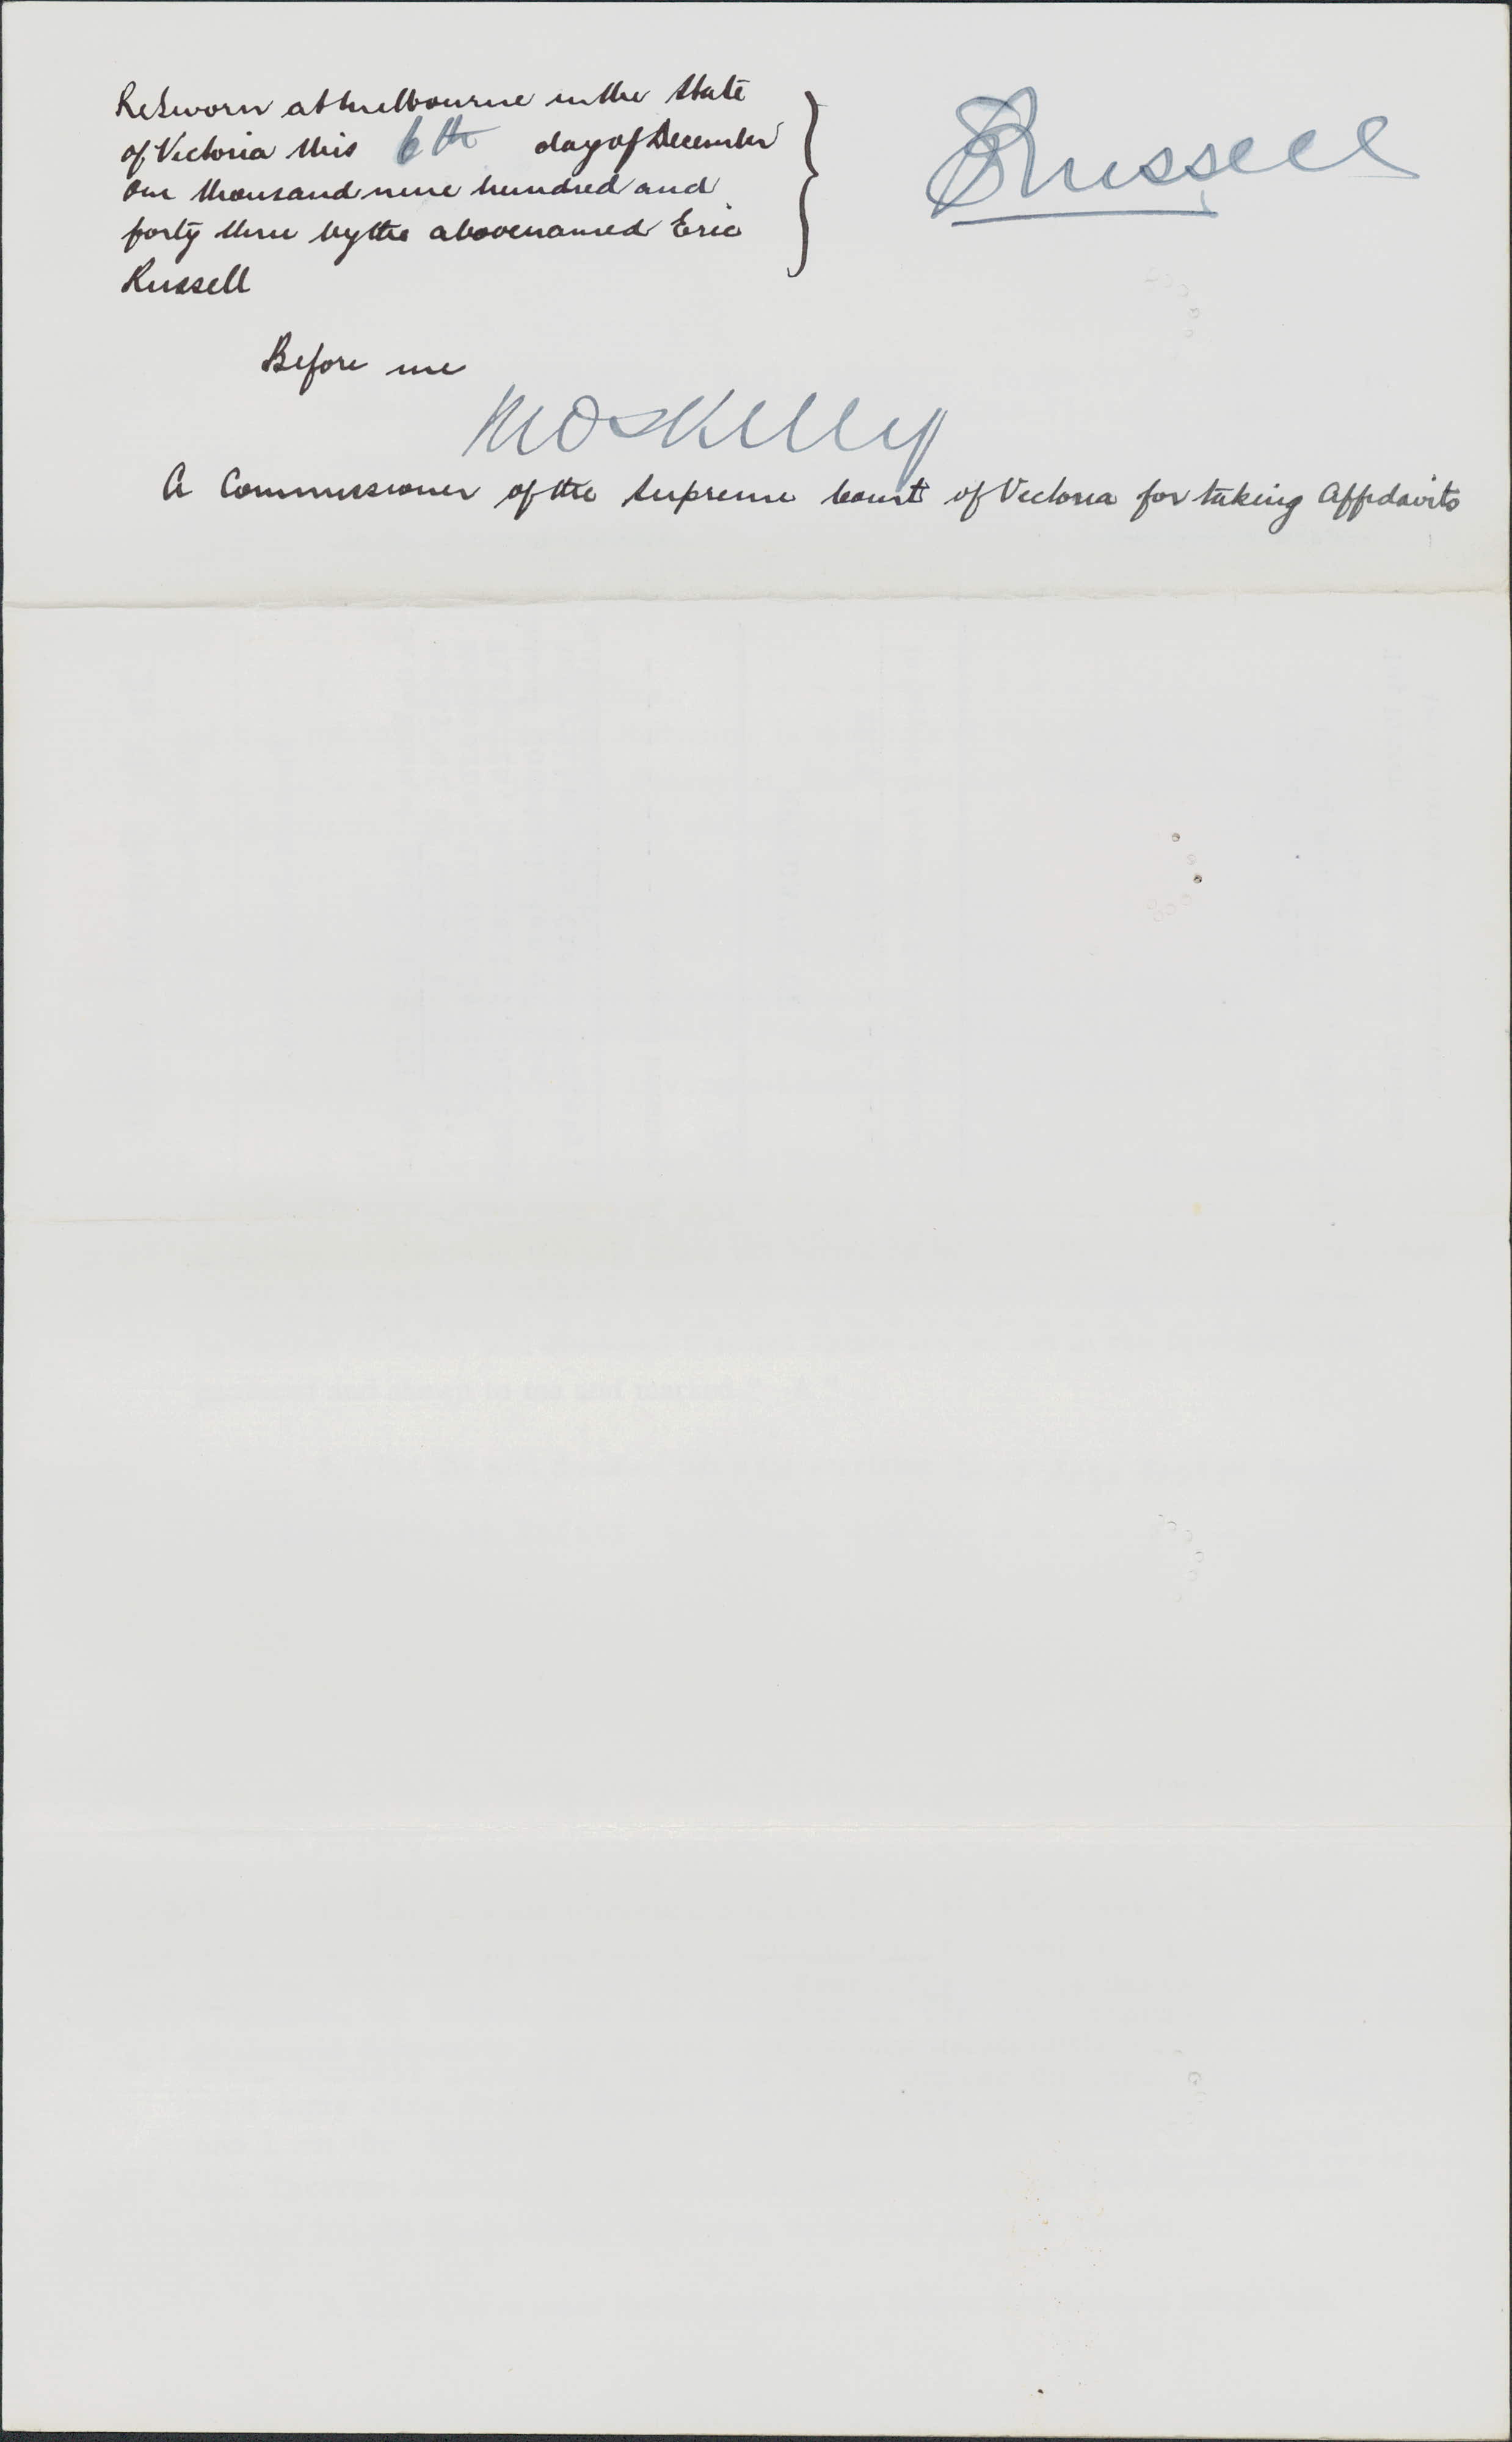 ReSworn at Melbourne in the State
of Victoria this 6th day of December
One thousand nine hundred and
forty three by the abovenamed Eric
Russell
ERussell
Before me
Kelly
A Commissioner of the Supreme Court of Victoria for taking Affidavits